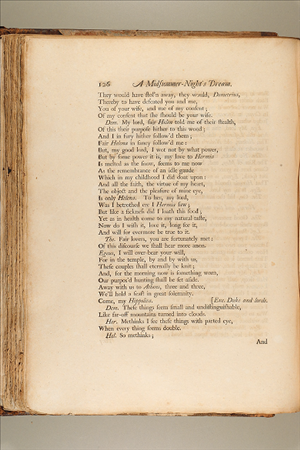 126 A Midsummer-Night's Dream.
They would have stol'n away, they would, Demetrius,
Thereby to have defeated you and me,
You of your wife, and me of my consent;
Of my consent that she should be your wife.
Dem. My lord, fair Helen told me of their stealth,
Of this their purpose hither to this wood;
And I in fury hither follow'd them;
Fair Helena in fancy follow'd me:
But, my good lord, I wot not by what power,
But by some power it is, my love to Hermia
Is melted as the snow, seems to me now
As the remembrance of an idle gaude
Which in my childhood I did doat upon:
And all the faith, the virtue of my heart,
The object and the pleasure of mine eye,
Is only Helena. To her, my lord,
Was I betrothed ere I Hermia saw;
But like a sickness did I loath this food;
Yet as in health come to my natural taste,
Now do I wish it, love it, long for it,
And will for evermore be true to it.
The. Fair lovers, you are fortunately met:
Of this discourse we shall hear more anon.
Egeus, I will over-bear your will,
For in the temple, by and by with us,
These couples shall eternally be knit;
And, for the morning now is something worn,
Our purpos'd hunting shall be set aside.
Away with us to Athens, three and three,
We'll hold a feast in great solemnity.
Come, my Hippolita. [Exe. Duke and lords.
Dem. These things seem small and undistinguishable,
Like far-off mountains turned into clouds.
Her. Methinks I see these things with parted eye,
When every thing seems double.
Hel. So methinks;
And